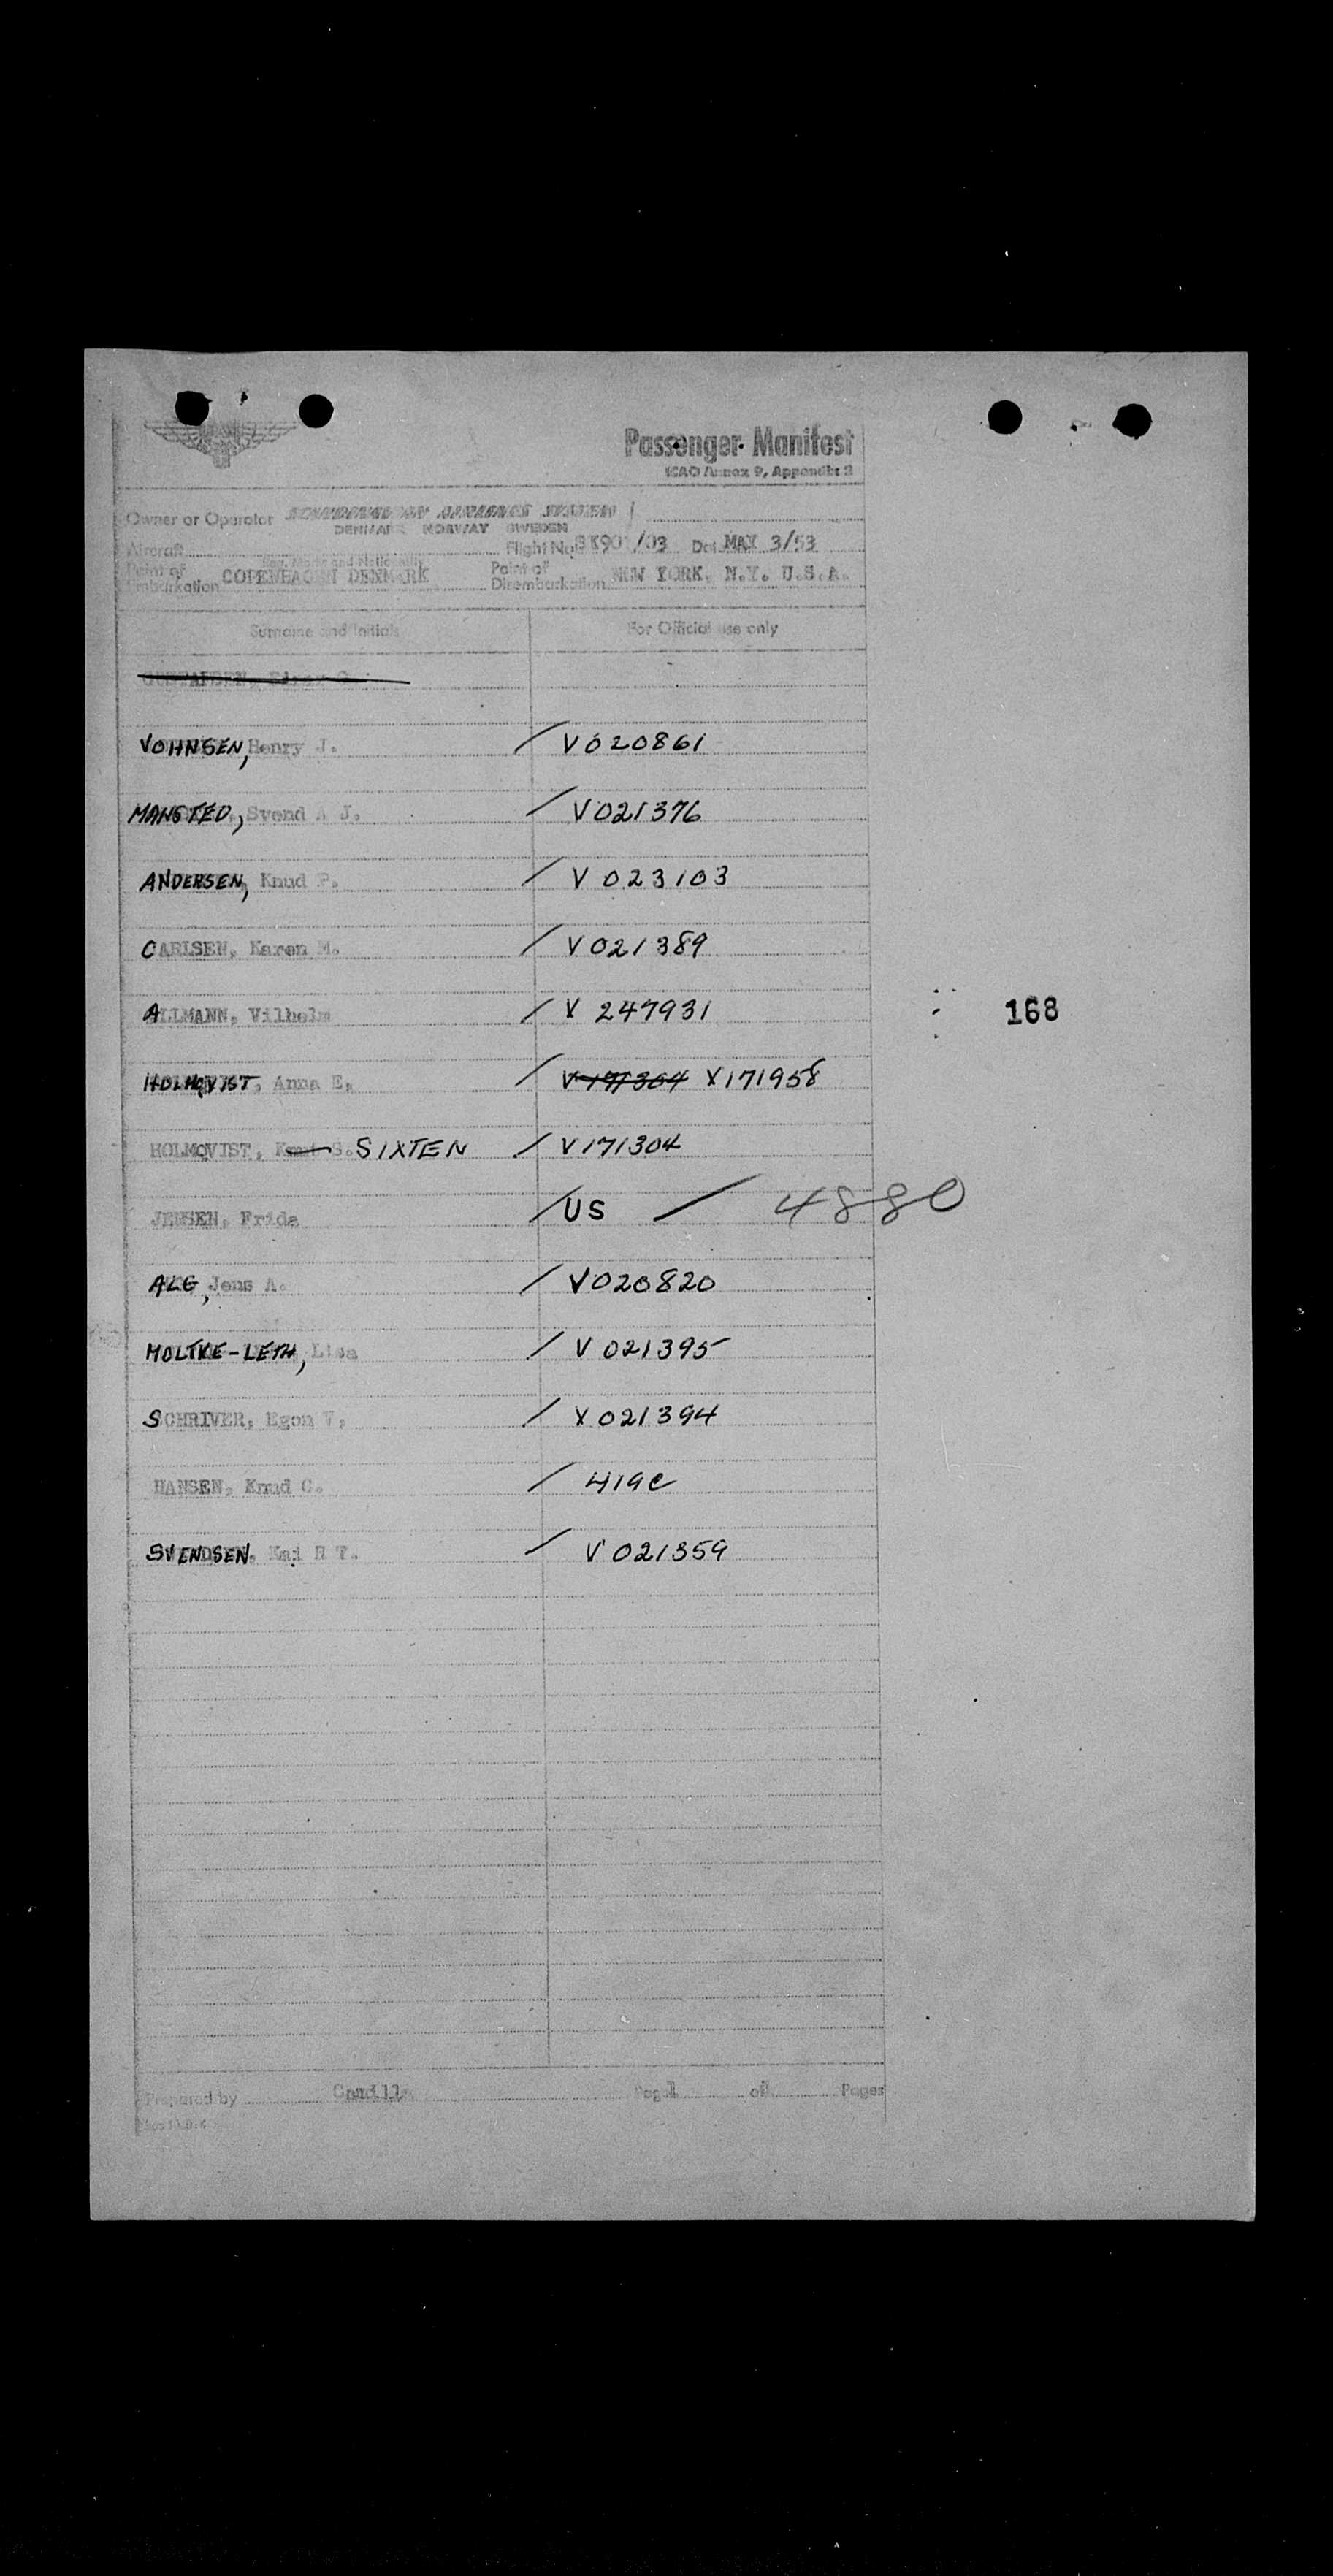 Passenger Manifest
ICAO Annex 9, Appendix 3
Owner or Operator SCANDINAVIAN AIRLINES SYSTEM
DENMARK NORWAY SWEDEN
Aircraft Flight No. SK901/03 Date MAY 3/53
Reg. Marks and Nationality
Point of Embarkation COPENHAGEN DENMARK Point of Disembarkation NEW YORK, N.Y. U.S.A.
Surname and Initials For Official use only
VOHNSEN, Henry J. / V020861
MANSTED, Svend A J. / V021376
ANDERSEN, Knud P. / V 023103
CARLSEN, Karen M. / V021389
ALLMANN, Vilhelm / V 247931
168
HOLMQVIST, Anna E. / V 171304 V171958
HOLMQVIST, S. SIXTEN / V171304
JENSEN, Frida / US / 4880
ALG, Jens A. / V020820
MOLTKE-LETH, Lisa / V 021395
SCHRIVER, Egon V. / V021394
HANSEN, Knud C. / 419c
SVENDSEN, Kai H T. / V 021359
Prepared by Page 1 of Pages